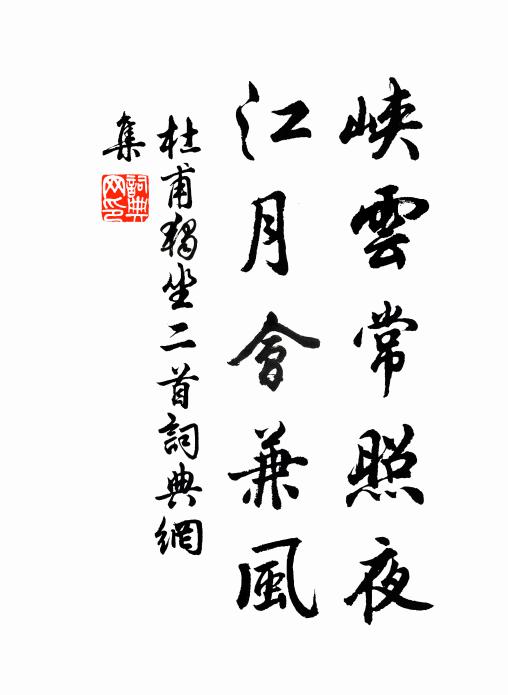 峽雲常照夜
江月會兼風
杜甫獨坐二首詞典網
集
詞典
网印